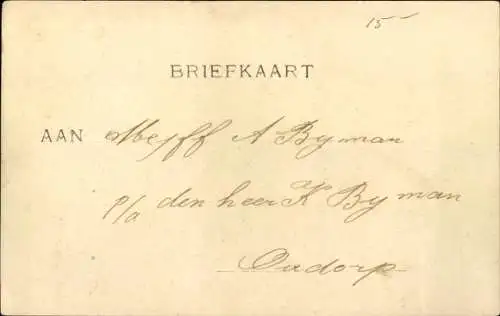 15-
BRIEFKAART
AAN Mejff A Byman
p/a den heer K Byman
Oudorp